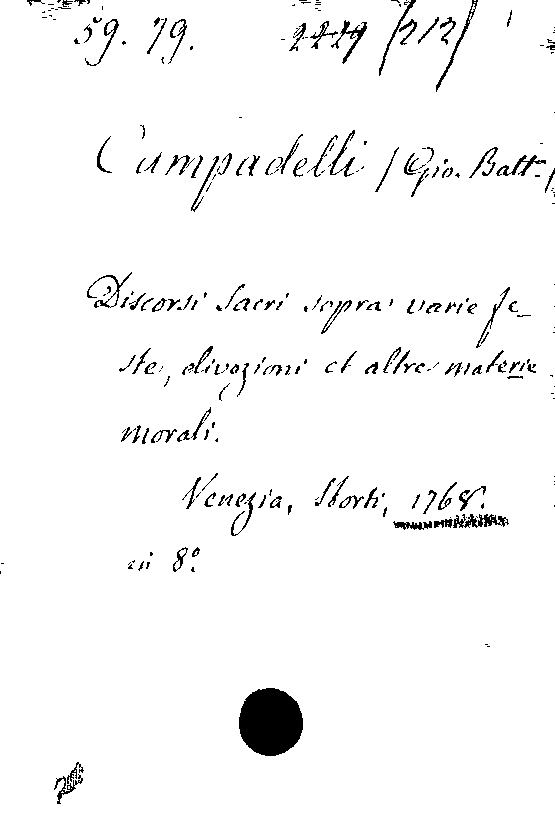 59. 79. 2229 (212)
Campadelli (Gio. Batt.)
Discorsi Sacri sopra varie fe-
ste, divozioni et altre materie
morali.
Venezia, Storti, 1768.
in 8º